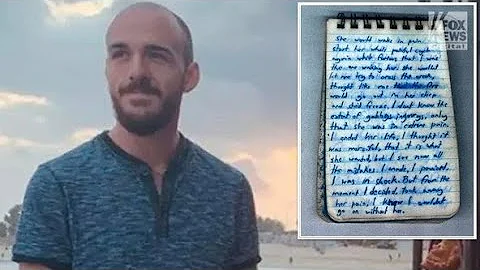 FOX
NEWS
digital
She would wake in pain,
start her whole painful cycle
again
that I was
the one waking her. She wouldn't
let me try to cross the creek,
thought like me the fire
would go out in her sleep
and she'd freeze. I don't know the
extent of gabby's injurys, only
that she was in extreme pain.
I ended her life, I thought it
was merciful, that it is what
she wanted, but I see now all
the mistakes I made. I panicked,
I was in shock. But from the
moment I decided, took away
her pain, I knew I wouldn't
go on without her.